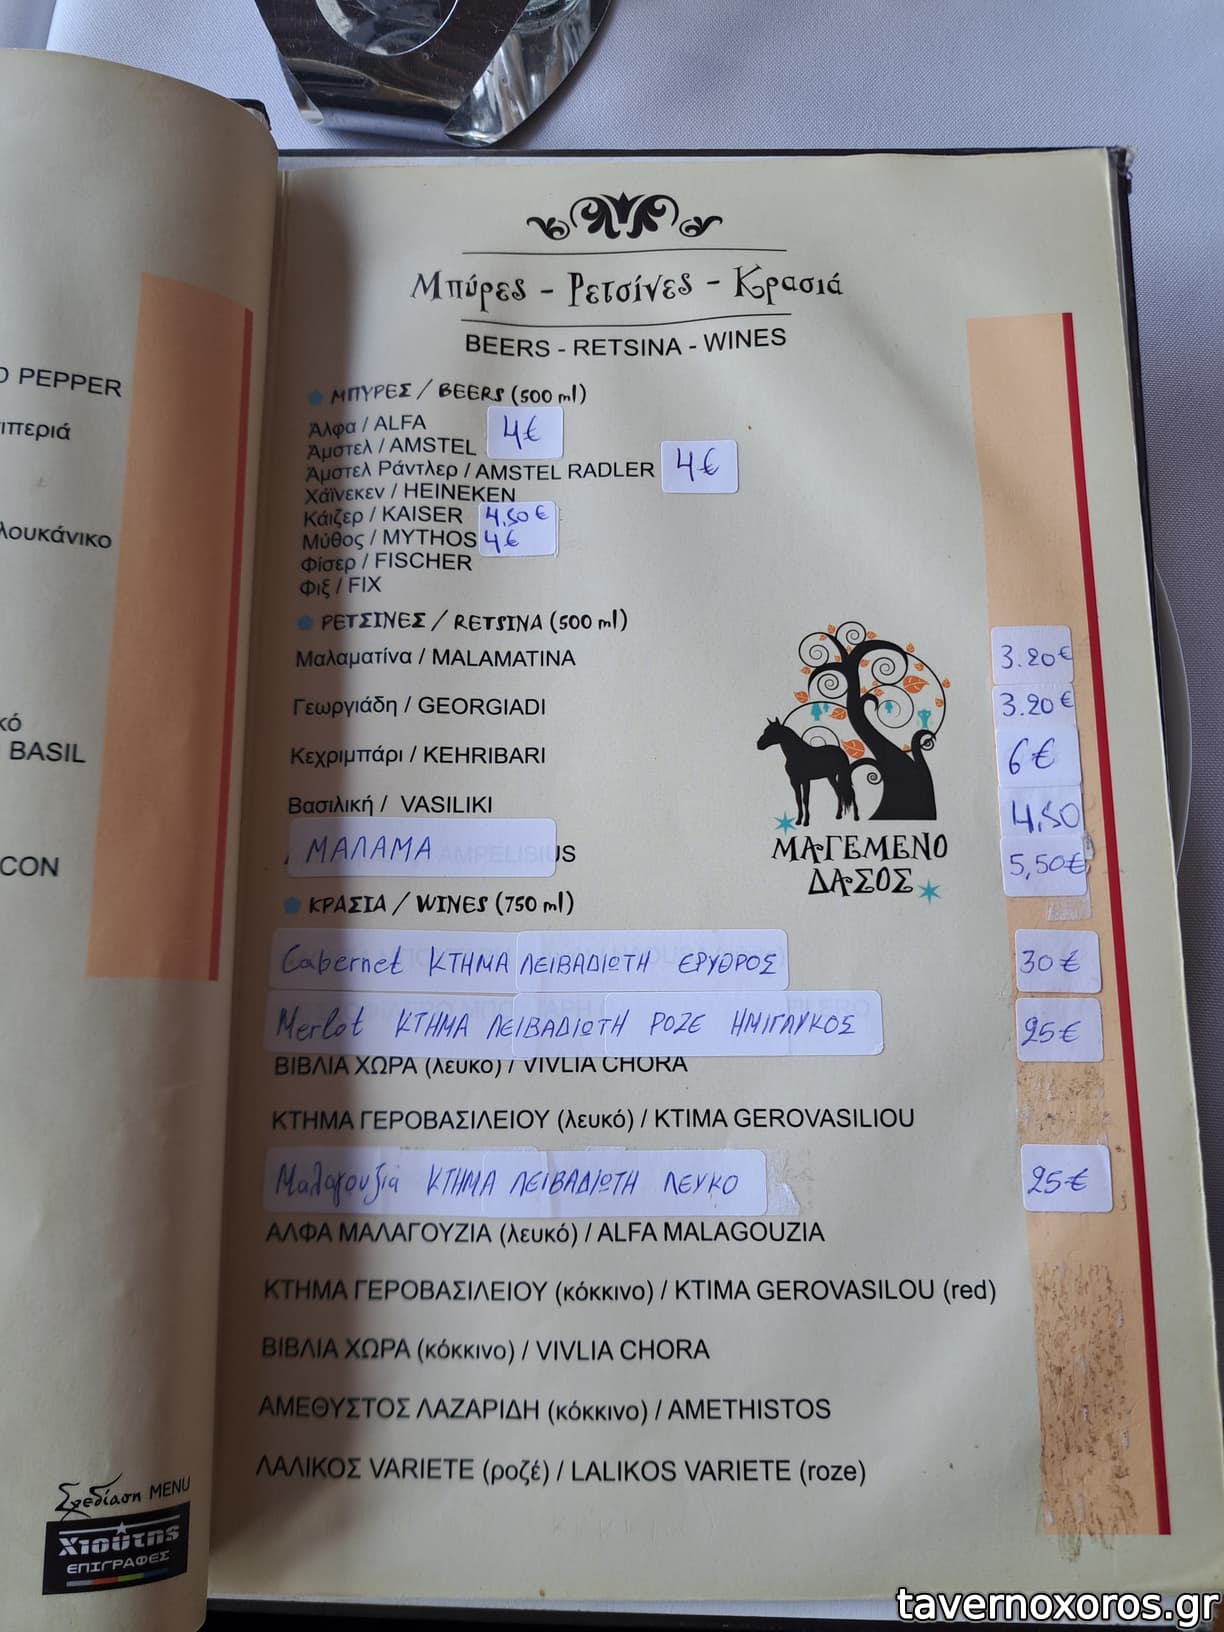 Ο PEPPER
ιπεριά
λουκάνικο
κό
BASIL
CON
Σχεδίαση MENU
Χιούτης
ΕΠΙΓΡΑΦΕΣ
Μπύρες - Ρετσίνες - Κρασιά
BEERS - RETSINA - WINES
ΜΠΥΡΕΣ / BEERS (500 ml)
Άλφα / ALFA 4€
Άμστελ / AMSTEL
Άμστελ Ράντλερ / AMSTEL RADLER 4€
Χάϊνεκεν / HEINEKEN
Κάιζερ / KAISER 4,50€
Μύθος / MYTHOS 4€
Φίσερ / FISCHER
Φιξ / FIX
ΡΕΤΣΙΝΕΣ / RETSINA (500 ml)
Μαλαματίνα / MALAMATINA 3.20€
Γεωργιάδη / GEORGIADI 3.20€
Κεχριμπάρι / KEHRIBARI 6€
Βασιλική / VASILIKI 4,50
ΜΑΛΑΜΑ AMPELISIUS 5,50€
ΜΑΓΕΜΕΝΟ
ΔΑΣΟΣ
ΚΡΑΣΙΑ / WINES (750 ml)
Cabernet ΚΤΗΜΑ ΛΕΙΒΑΔΙΩΤΗ ΕΡΥΘΡΟΣ 30€
Merlot ΚΤΗΜΑ ΛΕΙΒΑΔΙΩΤΗ ΡΟΖΕ ΗΜΙΓΛΥΚΟΣ 25€
ΒΙΒΛΙΑ ΧΩΡΑ (λευκό) / VIVLIA CHORA
ΚΤΗΜΑ ΓΕΡΟΒΑΣΙΛΕΙΟΥ (λευκό) / KTIMA GEROVASILIOU
Μαλαγουζιά ΚΤΗΜΑ ΛΕΙΒΑΔΙΩΤΗ ΛΕΥΚΟ 25€
ΑΛΦΑ ΜΑΛΑΓΟΥΖΙΑ (λευκό) / ALFA MALAGOUZIA
ΚΤΗΜΑ ΓΕΡΟΒΑΣΙΛΕΙΟΥ (κόκκινο) / KTIMA GEROVASILOU (red)
ΒΙΒΛΙΑ ΧΩΡΑ (κόκκινο) / VIVLIA CHORA
ΑΜΕΘΥΣΤΟΣ ΛΑΖΑΡΙΔΗ (κόκκινο) / AMETHISTOS
ΛΑΛΙΚΟΣ VARIETE (ροζέ) / LALIKOS VARIETE (roze)
tavernoxoros.gr